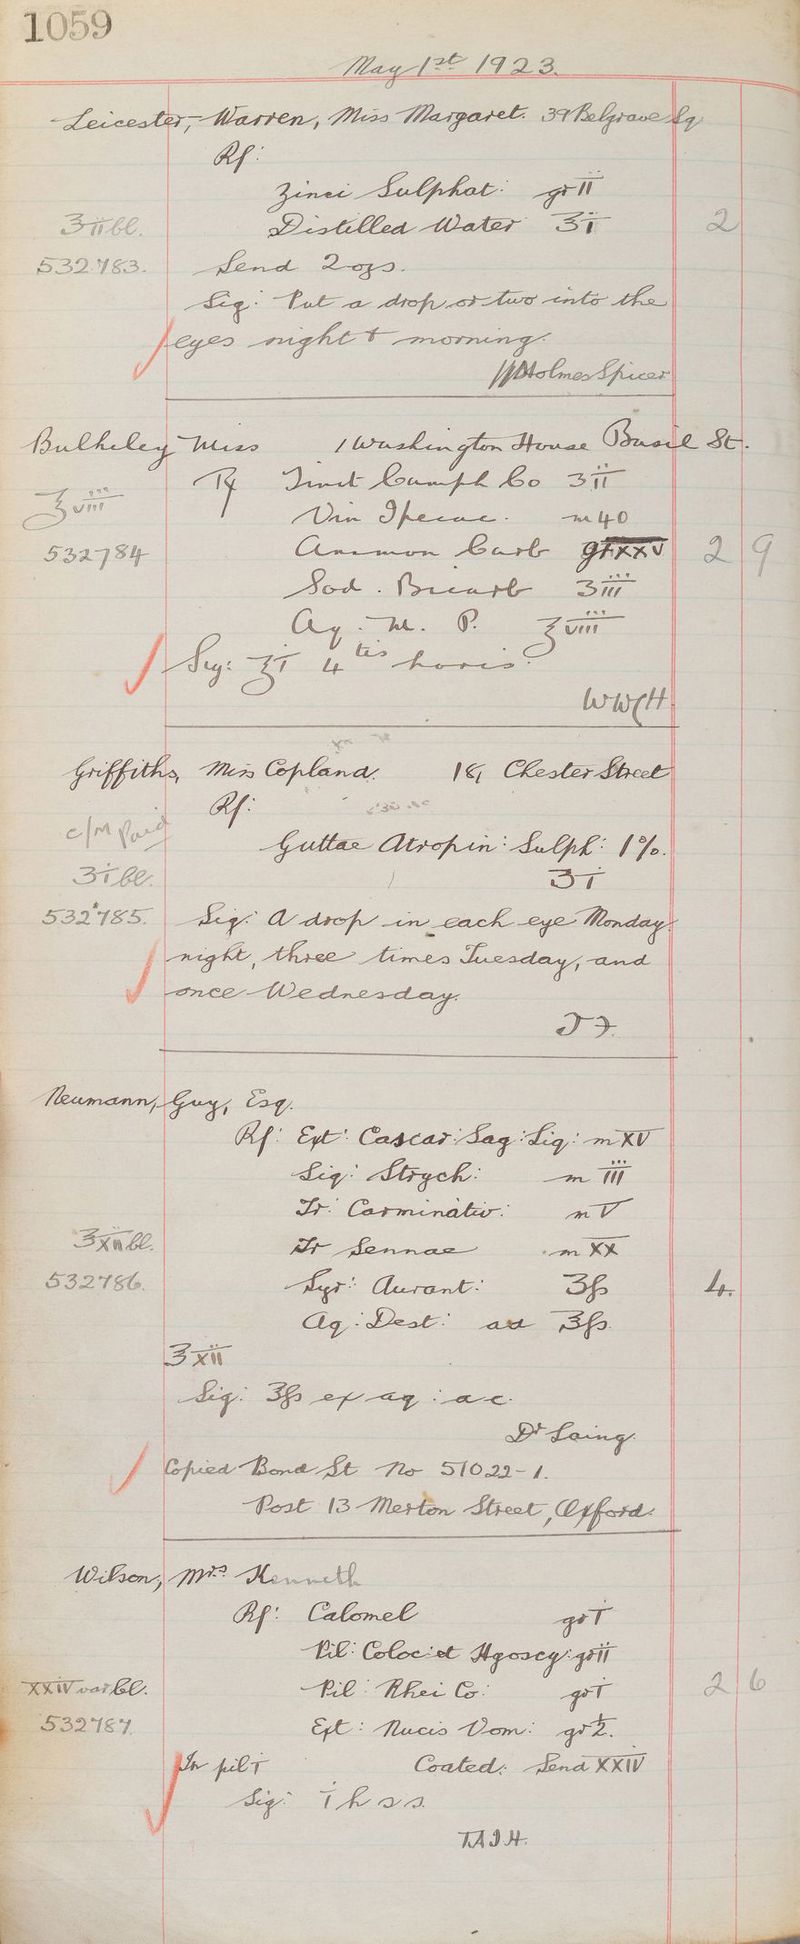 1059
May 1st 1923.
Leicester, Warren, Miss Margaret. 39 Belgrave Sq
Rf:
Zinci Sulphat: gr ii
ʒii bl. Distilled Water ʒi 2
532783. Send 2 ozs.
Sig: Put a drop or two into the
eyes night & morning.
Holmes Spicer
Bulkeley Miss 1 Washington House Basil St.
Rx Tinct Camph Co ʒii
℥viii Vin Ipecac. m 40
532784 Ammon Carb gr xxv 2 9
Sod. Bicarb ʒiii
Aq. M. P. ℥viii
Sig: ℥i 4 tis horis.
WWCH
Griffiths, Miss Copland. 18, Chester Street
Rf:
c/m Paid
Guttae Atropin: Sulph: 1%.
ʒi bl. ʒi
532785. Sig: A drop in each eye Monday
night, three times Tuesday, and
once Wednesday.
J F.
Neumann, Guy, Esq.
Rf: Ext: Cascar: Sag: Liq: m xv
Liq: Strych: m iii
Tr: Carminativ: m v
ʒxii bl. Tr Sennae m xx
532786. Syr: Aurant: ʒfs 4.
Aq: Dest: ad ʒfs.
ʒxii
Sig: ʒfs ex aq: a c.
Dr Laing.
Copied Bond St No 51022-1.
Post 13 Merton Street, Oxford.
Wilson, Mrs Kenneth
Rf: Calomel gr i
Pil: Coloc: et Hyoscy: gr ii
xxiv var bl. Pil: Rhei Co: gr i 2 6
532787. Ext: Nucis Vom: gr ½.
In pil i Coated: Send xxiv
Sig: i h s s.
T.A.I.H.